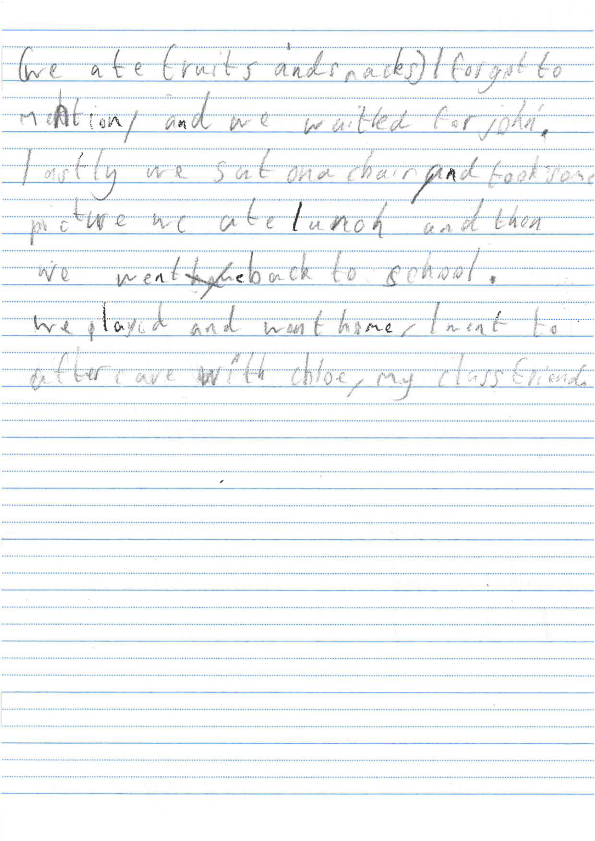 (we ate fruits and snacks) I forgot to
mention, and we waited for john.
lastly we sat on a chair and took some
picture we ate lunch and then
we went back to school.
we played and went home, I went to
aftercare with chloe, my class friend.